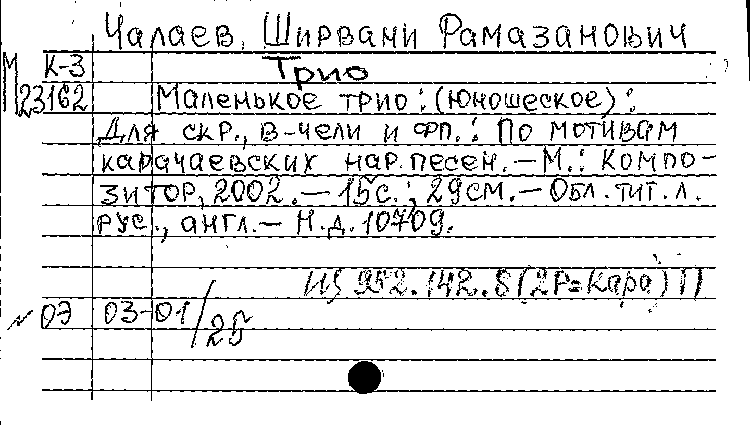 Чалаев, Ширвани Рамазанович
К-3 Трио
М 23162 Маленькое трио : (юношеское) :
Для скр., в-чели и фп. : По мотивам
карачаевских нар. песен. — М. : Компо-
зитор, 2002. — 15с. ; 29см. — Обл. тит. л.
рус., англ. — Н.д. 10709.
Щ 952.142.8(2Р=Кара) П
03 03-01/25